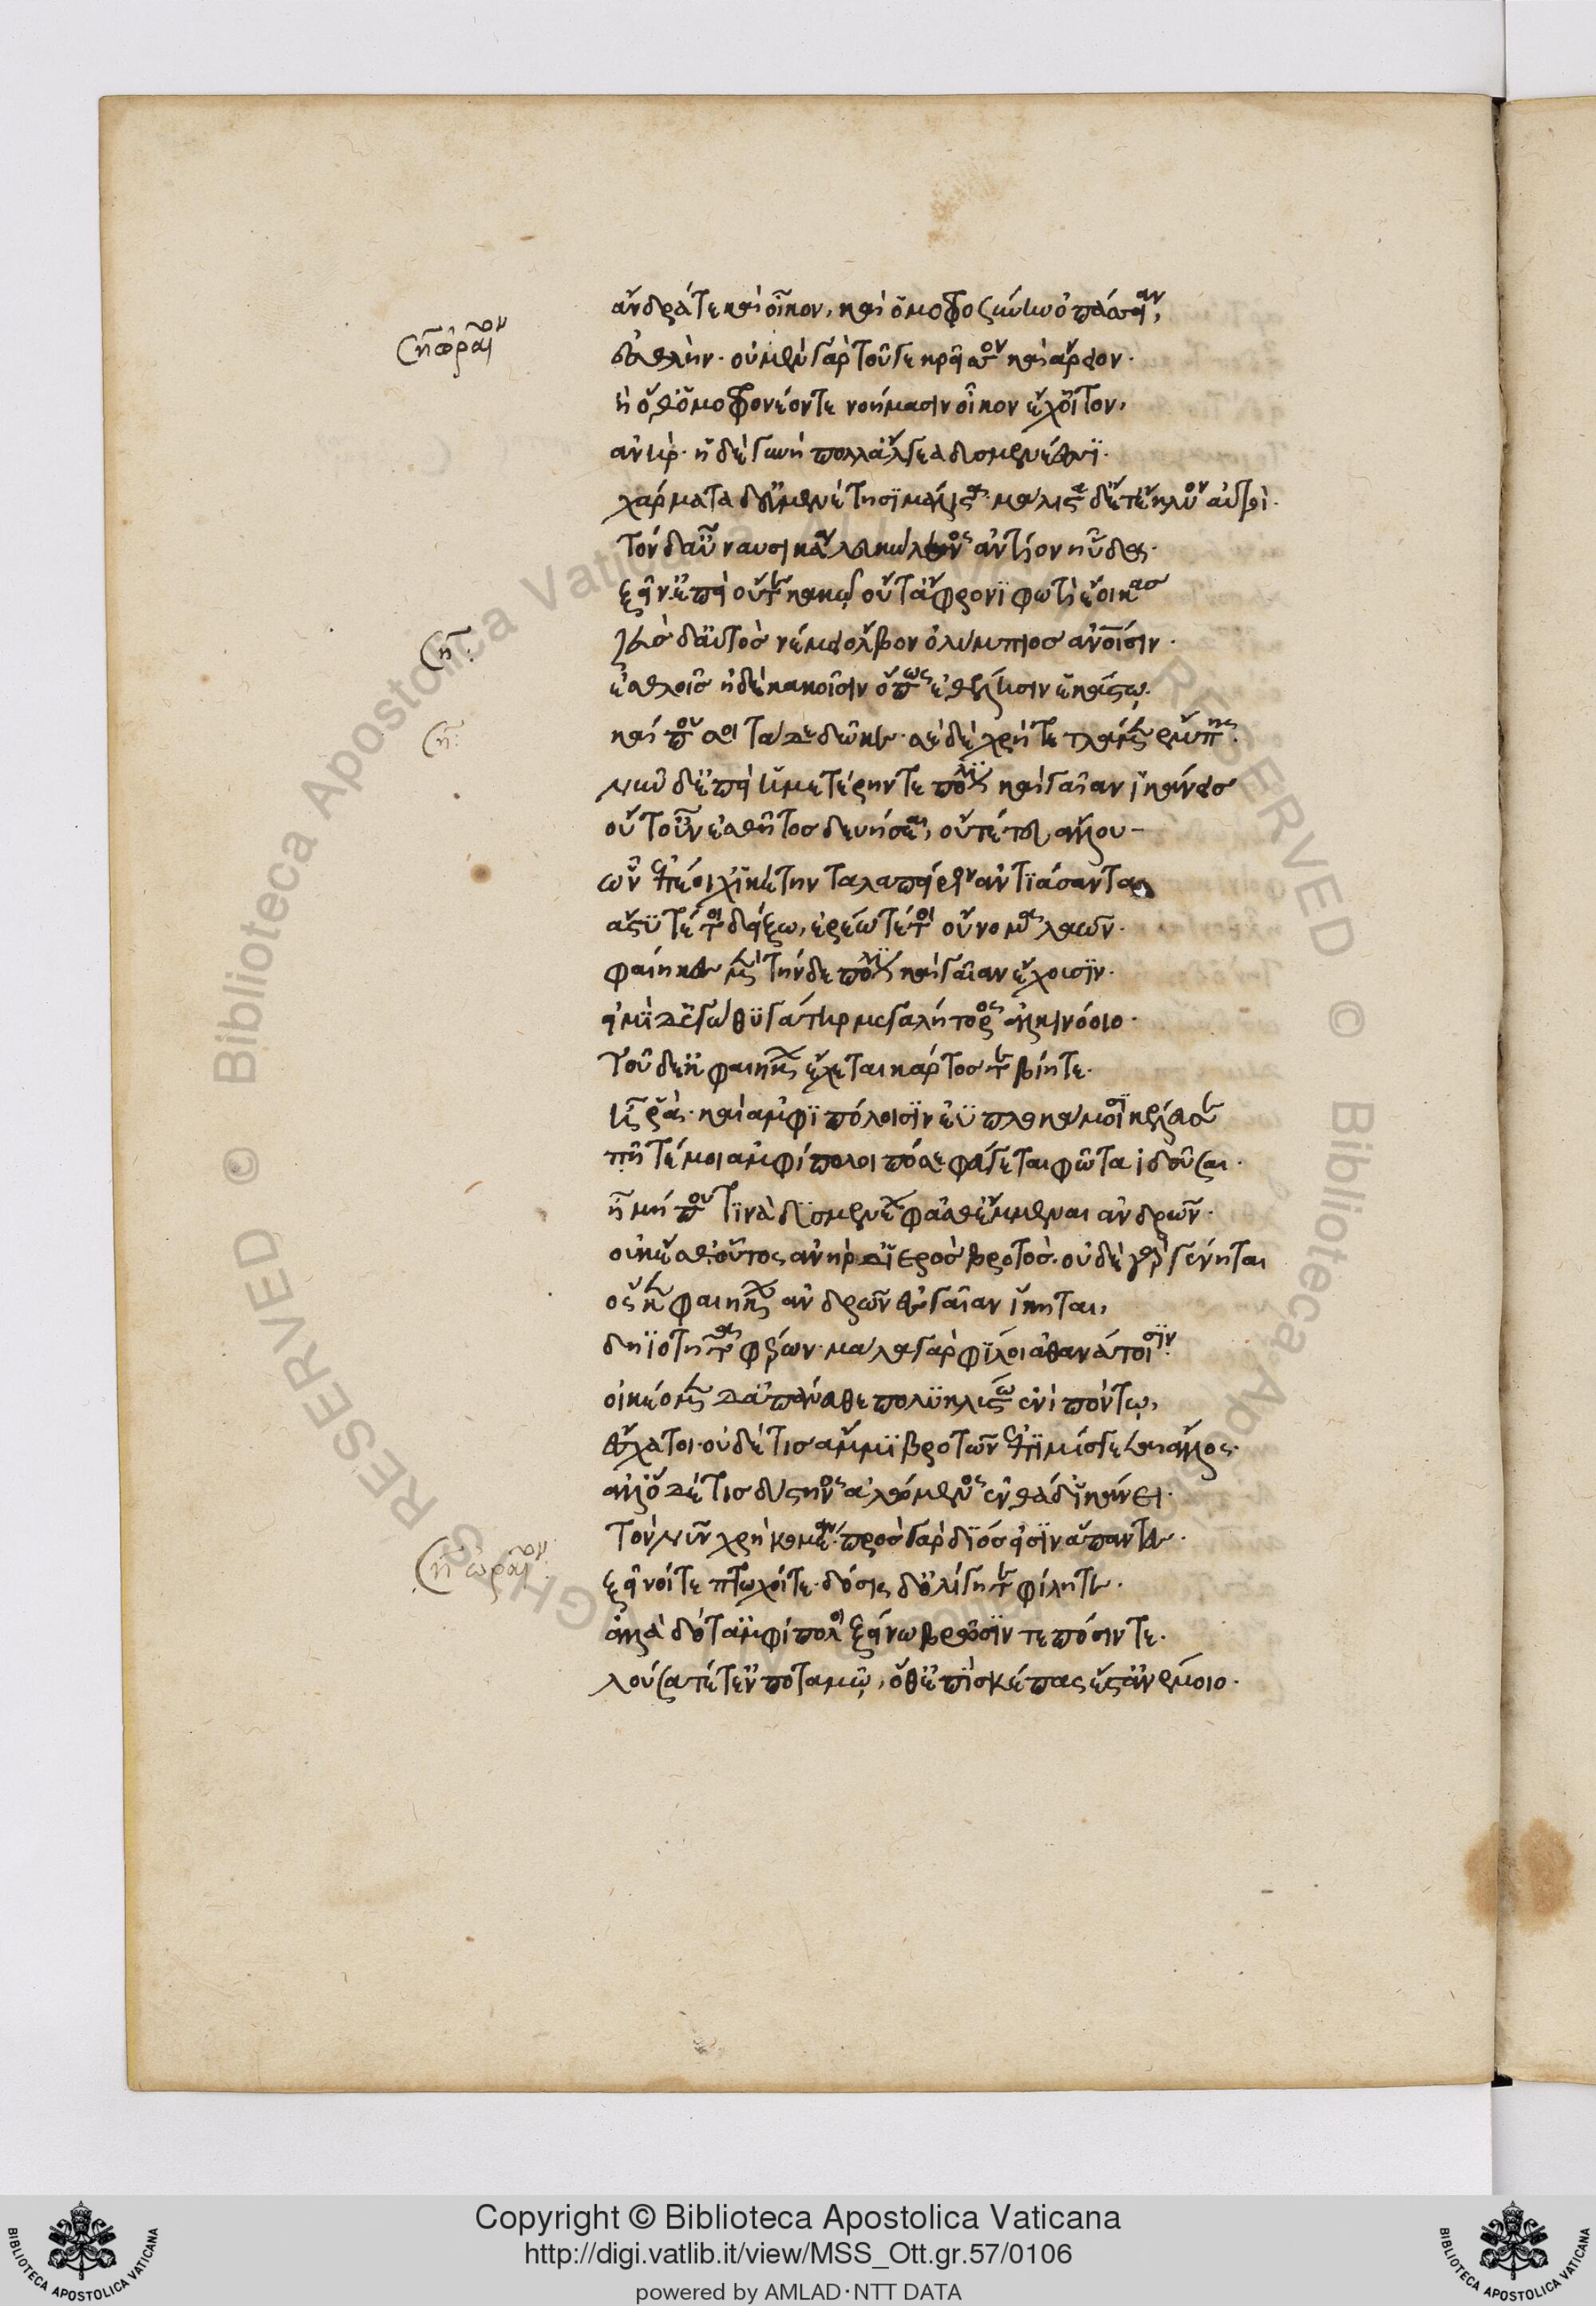 ἄνδρά τε καὶ οἶκον, καὶ ὁμοφροσύνην ὀπάσειαν,
ση ὡραῖον
ἐσθλήν· οὐ μὲν γὰρ τοῦ γε κρεῖσσον καὶ ἄρειον·
ἢ ὅθ' ὁμοφρονέοντε νοήμασιν οἶκον ἔχοιτον,
ἀνὴρ· ἠδὲ γυνὴ πολλ' ἄλγεα δυσμενέεσσι·
χάρματα δ' εὐμενέτησι μάλιστα· μάλιστα δέ τ' ἔκλυον αὐτοὶ·
Τὸν δ' αὖ ναυσικάα λευκώλενος ἀντίον ηὔδα·
ξεῖν' ἐπεὶ οὔτε κακῷ οὔτ' ἄφρονι φωτὶ ἔοικας
ση:
Ζεὺς δ' αὐτὸς νέμει ὄλβον ὀλύμπιος ἀνθρώποισιν·
ἐσθλοῖς ἠδὲ κακοῖσιν ὅπως ἐθέλησιν ἑκάστῳ·
ση:
καί που σοι τά γε δῶκε· σὲ δὲ χρὴ τετλάμεν ἔμπης·
νῦν δ' ἐπεὶ ἡμετέρην τε πόλιν καὶ γαῖαν ἱκάνεις
οὔτ' οὖν ἐσθῆτος δευήσεαι, οὔτέ τευ ἄλλου
ὧν ἐπέοιχ' ἱκέτην ταλαπείριον ἀντιάσαντα
ἄστυ τέ τοι δείξω, ἐρέω τέ τοι οὔνομα λαῶν·
φαίηκες μὲν τήνδε πόλιν καὶ γαῖαν ἔχουσιν·
εἰμὶ δ' ἐγὼ θυγάτηρ μεγαλήτορος ἀλκινόοιο·
Τοῦ δ' ἐκ φαιήκων ἔχεται κάρτος τε βίη τε·
ἦ ῥα· καὶ ἀμφιπόλοισιν ἐϋπλοκάμοισι κέλευσε
πῆτέ μοι ἀμφίπολοι πόσε φεύγεται φῶτα ἰδοῦσαι·
ἦ μή που τινὰ δυσμενέων φάσθ' ἔμμεναι ἀνδρῶν·
οὐκ ἔσθ' οὗτος ἀνὴρ διερὸς βροτὸς· οὐδὲ γένηται
ὅς κεν φαιήκων ἀνδρῶν ἐς γαῖαν ἵκηται,
δηϊοτῆτα φέρων· μάλα γὰρ φίλοι ἀθανάτοισιν·
οἰκέομεν δ' ἀπάνευθε πολυκλύστω ἐνὶ πόντῳ,
ἔσχατοι· οὐδέ τις ἄμμι βροτῶν ἐπιμίσγεται ἄλλος·
ἀλλ' ὅδε τις δύστηνος ἀλώμενος ἐνθάδ' ἱκάνει·
Τὸν νῦν χρὴ κομέειν· πρὸς γὰρ διός εἰσιν ἅπαντες·
ση ὡραῖον:
ξεῖνοί τε πτωχοί τε· δόσις δ' ὀλίγη τε φίλη τε·
ἀλλὰ δότ' ἀμφίπολοι ξείνω βρῶσίν τε πόσιν τε·
λούσατέ τ' ἐν ποταμῷ, ὅθ' ἐπὶ σκέπας ἔστ' ἀνέμοιο·
Copyright © Biblioteca Apostolica Vaticana
http://digi.vatlib.it/view/MSS_Ott.gr.57/0106
powered by AMLAD·NTT DATA